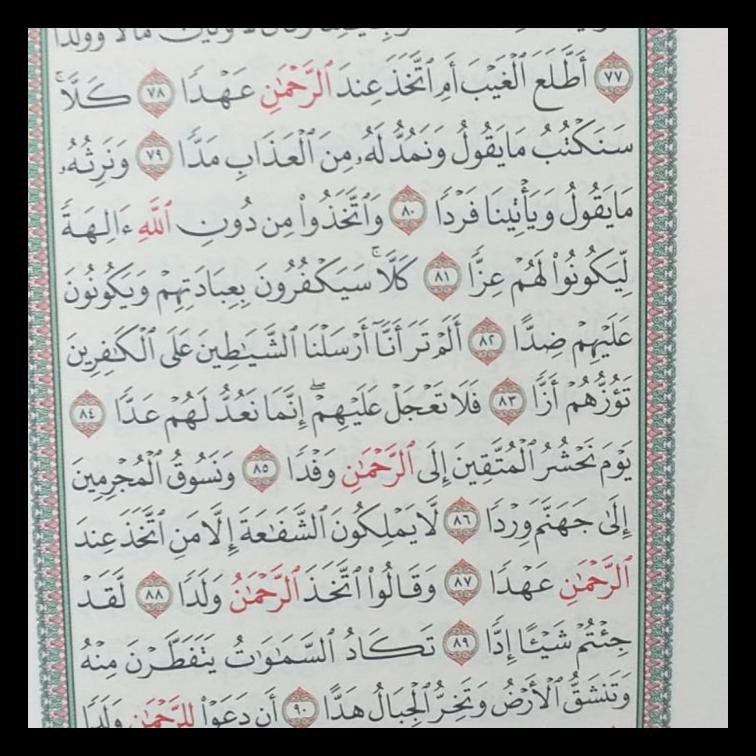 مَالًا وَوَلَدًا
﴿٧٧﴾ أَطَّلَعَ ٱلْغَيْبَ أَمِ ٱتَّخَذَ عِندَ ٱلرَّحْمَٰنِ عَهْدًا ﴿٧٨﴾ كَلَّاۚ
سَنَكْتُبُ مَا يَقُولُ وَنَمُدُّ لَهُۥ مِنَ ٱلْعَذَابِ مَدًّا ﴿٧٩﴾ وَنَرِثُهُۥ
مَا يَقُولُ وَيَأْتِينَا فَرْدًا ﴿٨٠﴾ وَٱتَّخَذُوا۟ مِن دُونِ ٱللَّهِ ءَالِهَةً
لِّيَكُونُوا۟ لَهُمْ عِزًّا ﴿٨١﴾ كَلَّاۚ سَيَكْفُرُونَ بِعِبَادَتِهِمْ وَيَكُونُونَ
عَلَيْهِمْ ضِدًّا ﴿٨٢﴾ أَلَمْ تَرَ أَنَّآ أَرْسَلْنَا ٱلشَّيَٰطِينَ عَلَى ٱلْكَٰفِرِينَ
تَؤُزُّهُمْ أَزًّا ﴿٨٣﴾ فَلَا تَعْجَلْ عَلَيْهِمْۖ إِنَّمَا نَعُدُّ لَهُمْ عَدًّا ﴿٨٤﴾
يَوْمَ نَحْشُرُ ٱلْمُتَّقِينَ إِلَى ٱلرَّحْمَٰنِ وَفْدًا ﴿٨٥﴾ وَنَسُوقُ ٱلْمُجْرِمِينَ
إِلَىٰ جَهَنَّمَ وِرْدًا ﴿٨٦﴾ لَّا يَمْلِكُونَ ٱلشَّفَٰعَةَ إِلَّا مَنِ ٱتَّخَذَ عِندَ
ٱلرَّحْمَٰنِ عَهْدًا ﴿٨٧﴾ وَقَالُوا۟ ٱتَّخَذَ ٱلرَّحْمَٰنُ وَلَدًا ﴿٨٨﴾ لَّقَدْ
جِئْتُمْ شَيْـًٔا إِدًّا ﴿٨٩﴾ تَكَادُ ٱلسَّمَٰوَٰتُ يَتَفَطَّرْنَ مِنْهُ
وَتَنشَقُّ ٱلْأَرْضُ وَتَخِرُّ ٱلْجِبَالُ هَدًّا ﴿٩٠﴾ أَن دَعَوْا۟ لِلرَّحْمَٰنِ وَلَدًا